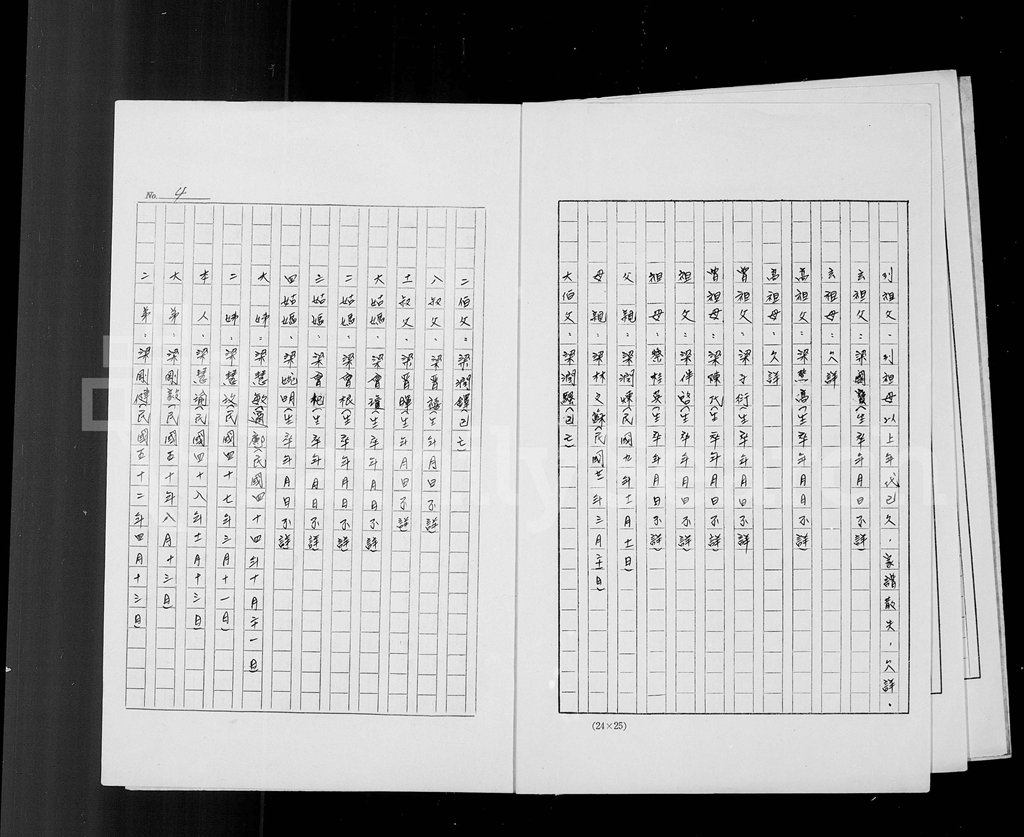 列祖父：列祖母以上年代已久，家譜散失，欠詳。
玄祖父：梁國賢(生卒年月日不詳)
玄祖母：欠詳
高祖父：梁　高(生卒年月日不詳)
高祖母：欠詳
曾祖父：梁　衍(生卒年月日不詳
曾祖母：陳氏(生卒年月日不詳)
祖父：梁伴(生卒年月日不詳)
祖母：桂英(生卒年月日不詳)
父　親：梁潤(民國九年十一月十一日)
母　親：梁林　蘇(民國廿一年三月二十日)
大伯父：梁潤(已亡)
No. 4
二伯父：梁潤(已亡)
八叔父：梁(生年月日不詳)
十一叔父：梁(生年月日不詳)
大姑媽：梁會瓊(生卒年月日不詳)
二姑媽：梁會根(生卒年月日不詳)
三姑媽：梁會杞(生卒年月日不詳)
四姑媽：梁婉明(生卒年月日不詳)
大　姊：梁慧敏(適鄭)(民國四十四年十月二十一日)
二　姊：梁慧玫(民國四十七年三月十一日)
本　人：梁慧瑜(民國四十八年十一月十三日)
大　弟：梁剛毅(民國五十年八月十三日)
二　弟：梁剛健(民國五十二年四月十三日)
(24×25)